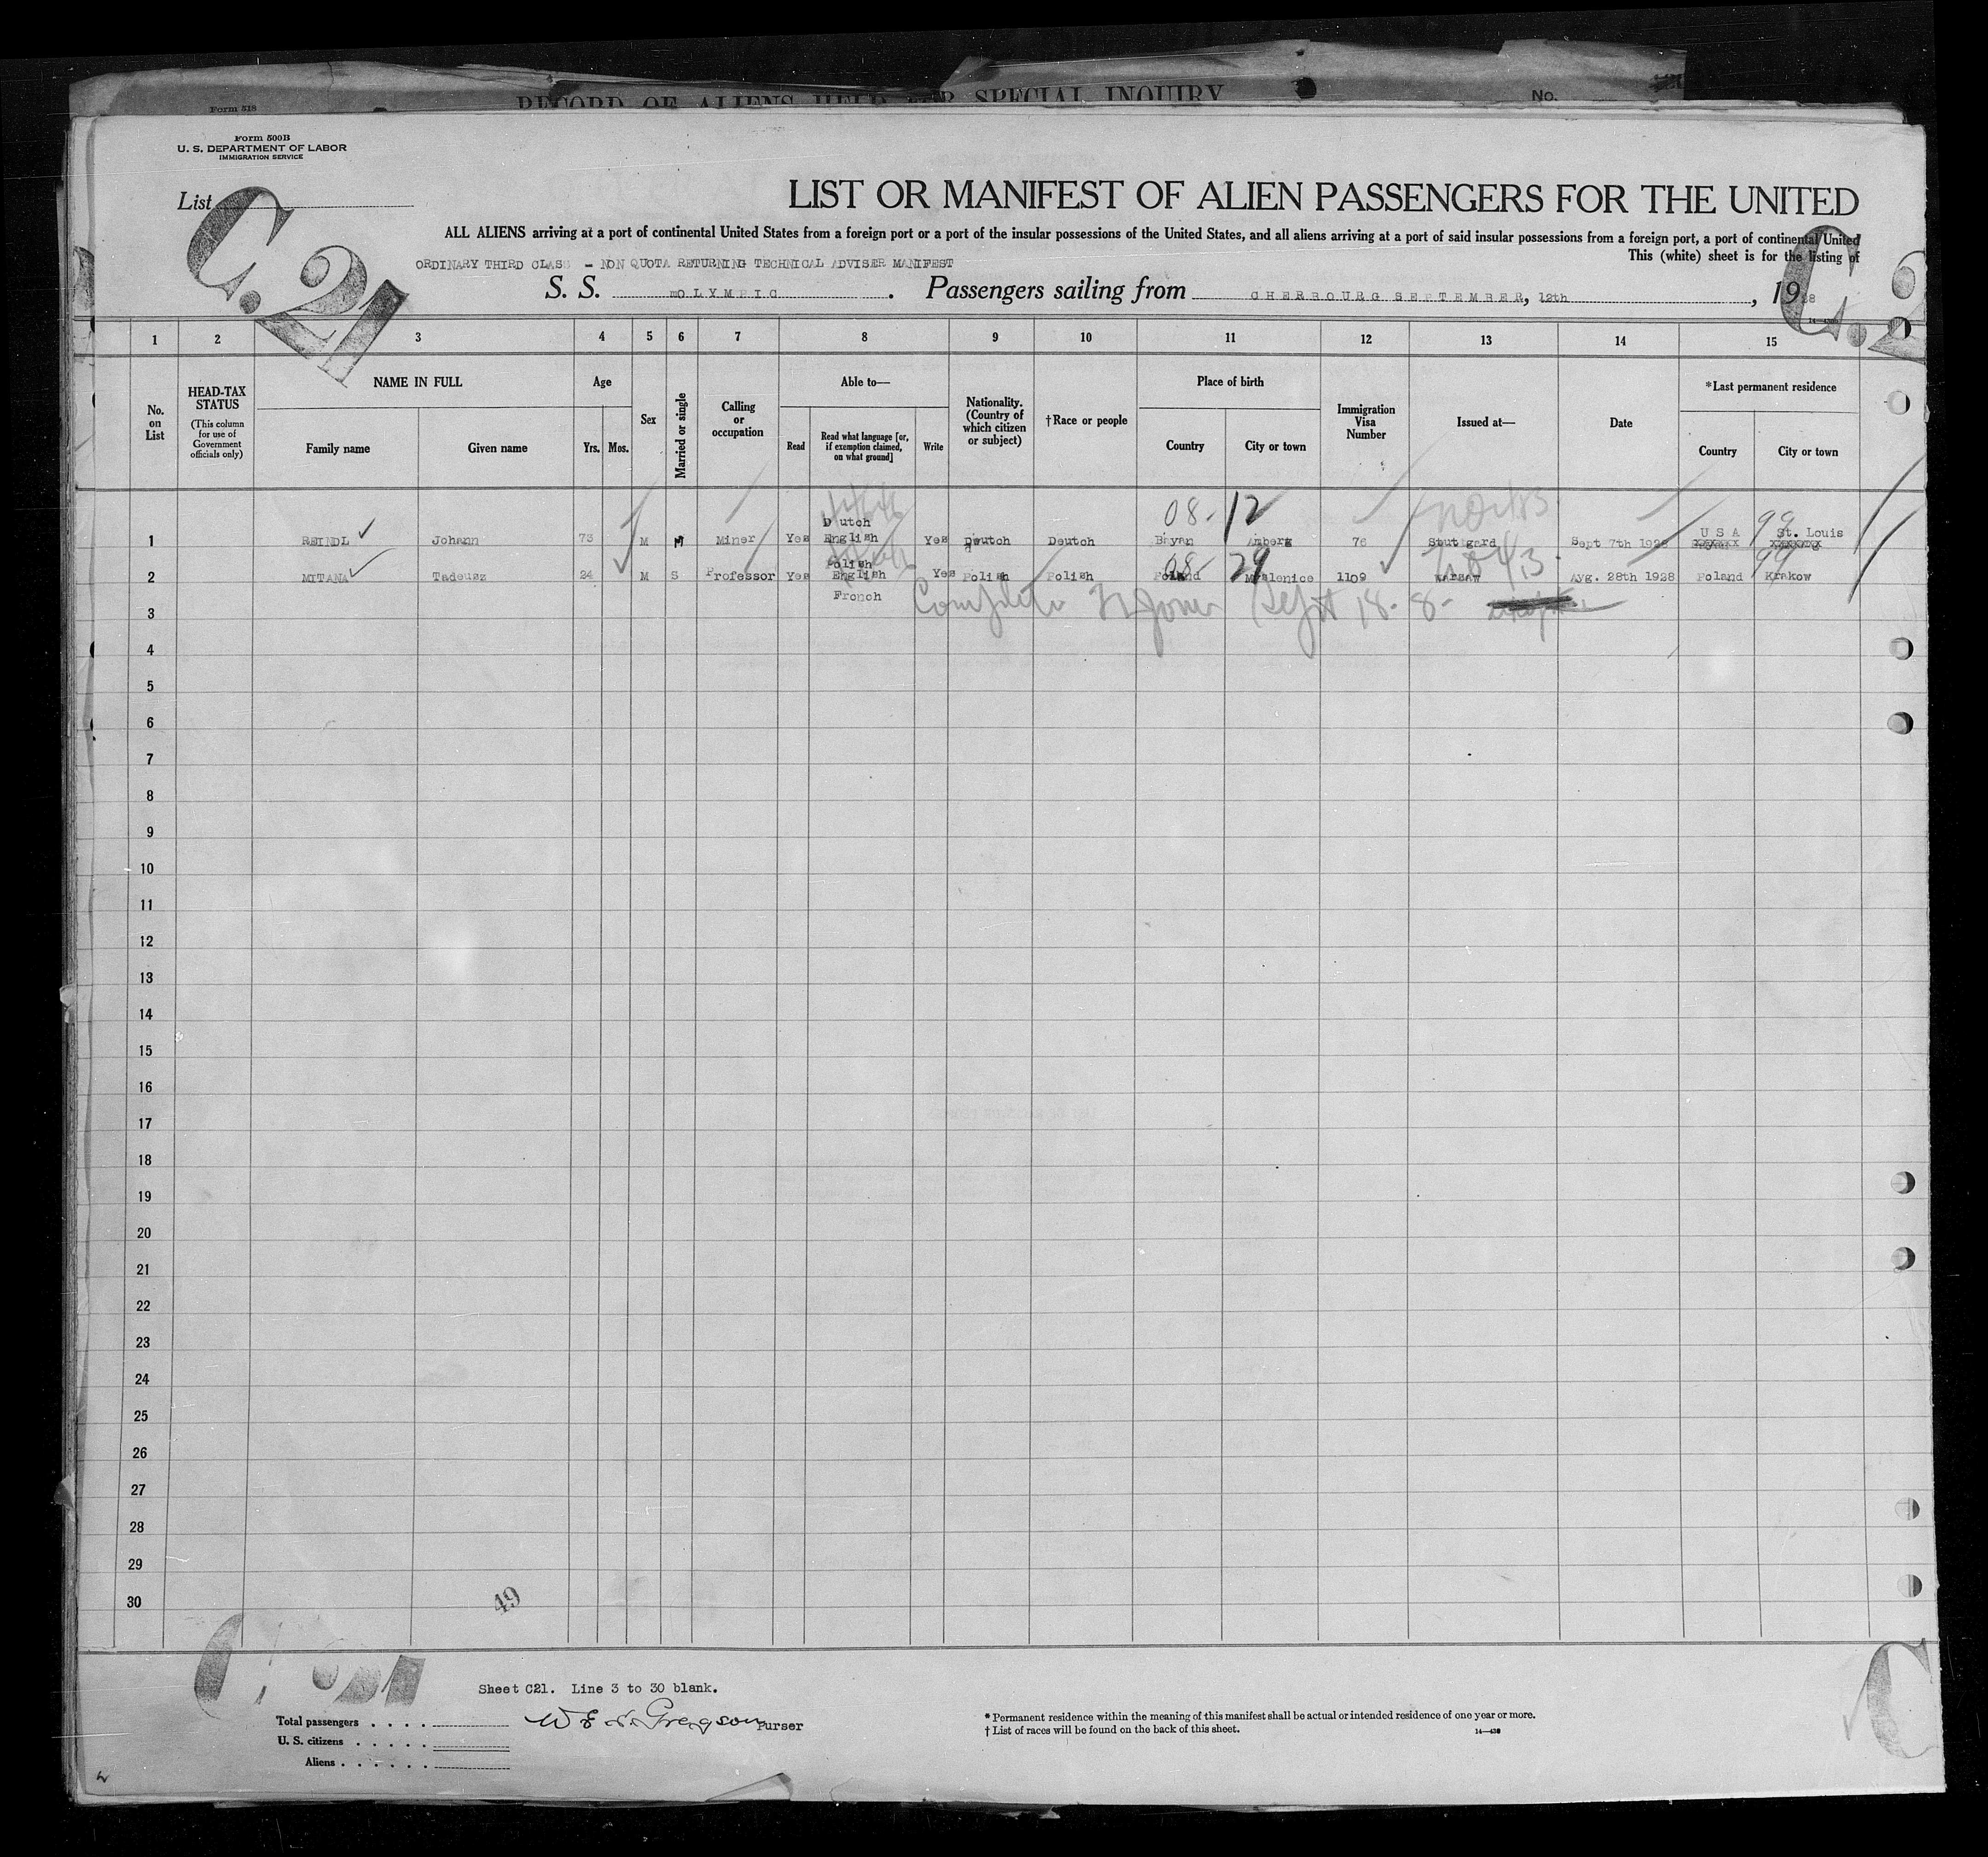 Form 518
RECORD OF ALIENS HELD FOR SPECIAL INQUIRY
No.
Form 500B
U. S. DEPARTMENT OF LABOR
IMMIGRATION SERVICE
List
C. 21
LIST OR MANIFEST OF ALIEN PASSENGERS FOR THE UNITED
ALL ALIENS arriving at a port of continental United States from a foreign port or a port of the insular possessions of the United States, and all aliens arriving at a port of said insular possessions from a foreign port, a port of continental United
This (white) sheet is for the listing of
ORDINARY THIRD CLASS - NON QUOTA RETURNING TECHNICAL ADVISER MANIFEST
S. S. mOLYMPIC. Passengers sailing from CHERBOURG SEPTEMBER, 12th, 1928
C. 2
14—438
1 2 3 4 5 6 7 8 9 10 11 12 13 14 15
No. on List
HEAD-TAX STATUS (This column for use of Government officials only)
NAME IN FULL
Family name
Given name
Age
Yrs. Mos.
Sex
Married or single
Calling or occupation
Able to—
Read
Read what language [or, if exemption claimed, on what ground]
Write
Nationality. (Country of which citizen or subject)
†Race or people
Place of birth
Country
City or town
Immigration Visa Number
Issued at—
Date
*Last permanent residence
Country
City or town
08-12 99
1 REINDL Johann 73 M M Miner Yes Deutch English Yes Deutch Deutch Bayan Amberg 76 Stuttgard Sept 7th 1928 U S A St. Louis
08 29 99
2 MITANA Tadeusz 24 M S Professor Yes Polish English French Yes Polish Polish Poland Myslenice 1109 Warsaw Ayg. 28th 1928 Poland Krakow
Complete Sept 18-8-
3
4
5
6
7
8
9
10
11
12
13
14
15
16
17
18
19
20
21
22
23
24
25
26
27
28
29
30
49
Sheet C21. Line 3 to 30 blank.
Total passengers . . . .
Gregson Purser
U. S. citizens . . . . .
Aliens . . . . . .
* Permanent residence within the meaning of this manifest shall be actual or intended residence of one year or more.
† List of races will be found on the back of this sheet.
14—438
C